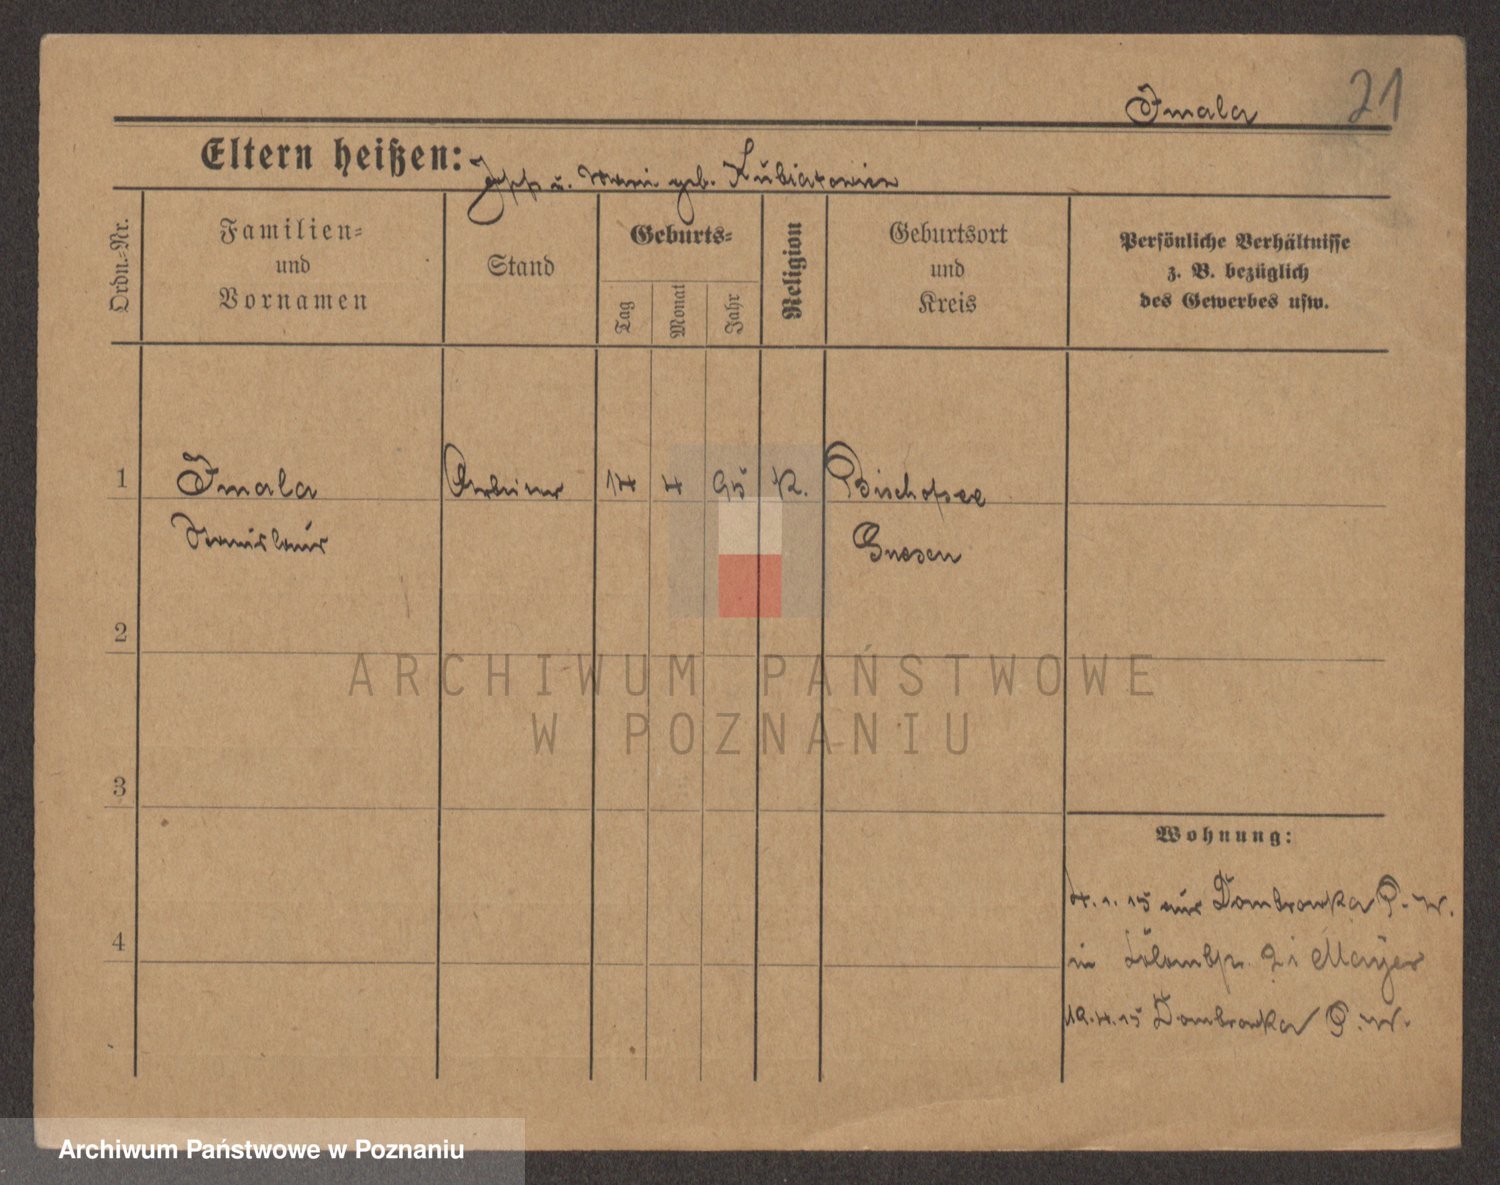 21
Smala
Eltern heißen: Josef u. Marie geb. Kubiatowicz
Ordn.-Nr.
Familien-
und
Vornamen
Stand
Geburts-
Tag
Monat
Jahr
Religion
Geburtsort
und
Kreis
Persönliche Verhältnisse
z. B. bezüglich
des Gewerbes usw.
1 Smala Arbeiter 14 4 95 K. Bischofsee
Stanislaus Gnesen
2
3
4
Wohnung:
4.1.15 aus Dombrowka P.W.
in 21 Mayer
19.4.15 Dombrowka P.W.
ARCHIWUM PAŃSTWOWE
W POZNANIU
Archiwum Państwowe w Poznaniu